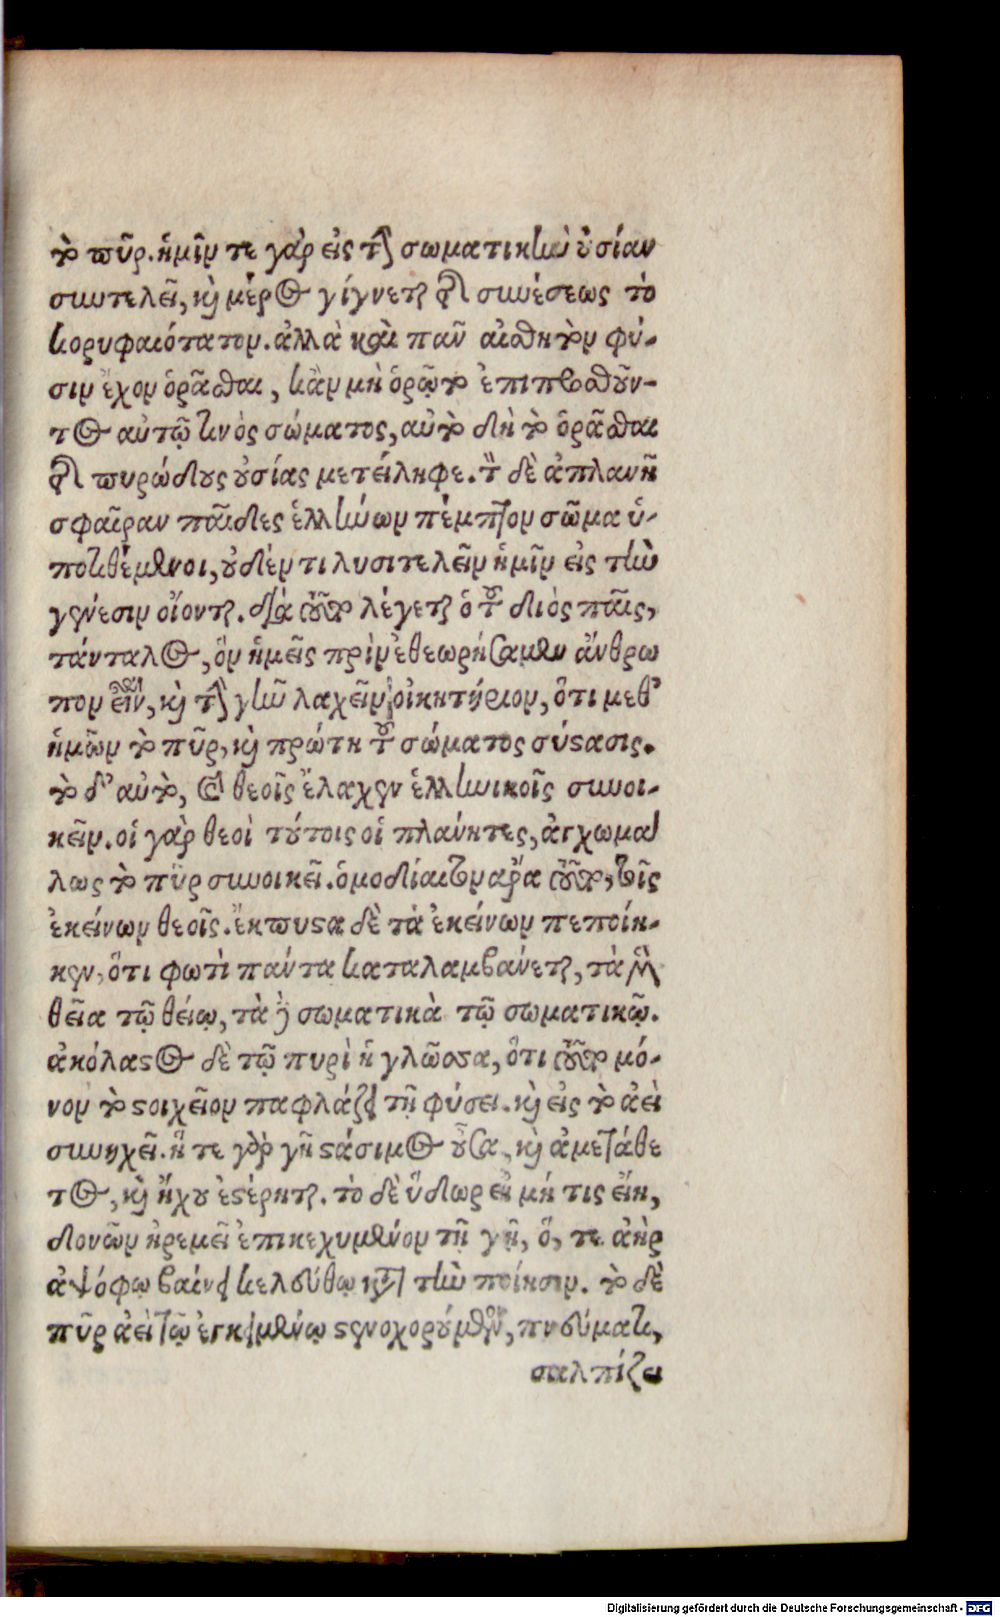 τὸ πῦρ. ἡμῖν τε γὰρ εἰς τὴν σωματικὴν οὐσίαν
συντελεῖ, καὶ μέρος γίγνεται τῆς συνέσεως τὸ
κορυφαιότατον. ἀλλὰ καὶ πᾶν αἰσθητὸν φύ-
σιν ἔχον ὁρᾶσθαι, κἂν μὴ ὁρῷτο ἐπιπροσθοῦν-
τος αὐτῷ τινὸς σώματος, αὐτὸ δὴ τὸ ὁρᾶσθαι
τῆς πυρώδους οὐσίας μετείληφε. τὴν δὲ ἀπλανῆ
σφαῖραν παῖδες ἑλλήνων πέμπτον σῶμα ὑ-
ποτιθέμενοι, οὐδέν τι λυσιτελεῖν ἡμῖν εἰς τὴν
γένεσιν οἴονται. διὰ τοῦτο λέγεται ὁ τοῦ διὸς παῖς,
τάνταλος, ὃν ἡμεῖς πρὶν ἐθεωρήσαμεν ἄνθρω
πον εἶναι, καὶ τὴν γῆν λαχεῖν οἰκητήριον, ὅτι μεθ’
ἡμῶν τὸ πῦρ, καὶ πρώτη τοῦ σώματος σύστασις.
τὸ δ’ αὐτὸ, καὶ θεοῖς ἔλαχεν ἑλληνικοῖς συνοι-
κεῖν. οἱ γὰρ θεοὶ τούτοις οἱ πλάνητες, ἀγχωμά
λως τὸ πῦρ συνοικεῖ. ὁμοδίαιτον ἄρα τοῦτο, τοῖς
ἐκείνων θεοῖς. ἔκπυστα δὲ τὰ ἐκείνων πεποίη-
κεν, ὅτι φωτὶ πάντα καταλαμβάνεται, τὰ μὲν
θεῖα τῷ θείῳ, τὰ δὲ σωματικὰ τῷ σωματικῷ.
ἀκόλαστος δὲ τῷ πυρὶ ἡ γλῶσσα, ὅτι τοῦτο μό-
νον τὸ στοιχεῖον παφλάζει τῇ φύσει. καὶ εἰς τὸ ἀεὶ
συνηχεῖ. ἥ τε γὰρ γῆ στάσιμος οὖσα, καὶ ἀμετάθε
τος, καὶ ἤχου ἐστέρηται. τὸ δὲ ὕδωρ εἰ μή τις εἴη,
δονῶν ἠρεμεῖ ἐπικεχυμένον τῇ γῇ, ὅ, τε ἀὴρ
ἀψόφῳ βαίνει κελεύθῳ κατὰ τὴν ποίησιν. τὸ δὲ
πῦρ ἀεὶ τῷ ἐγκειμένῳ στενοχορούμενον, πνεύματι,
σαλπίζει
Digitalisierung gefördert durch die Deutsche Forschungsgemeinschaft - DFG